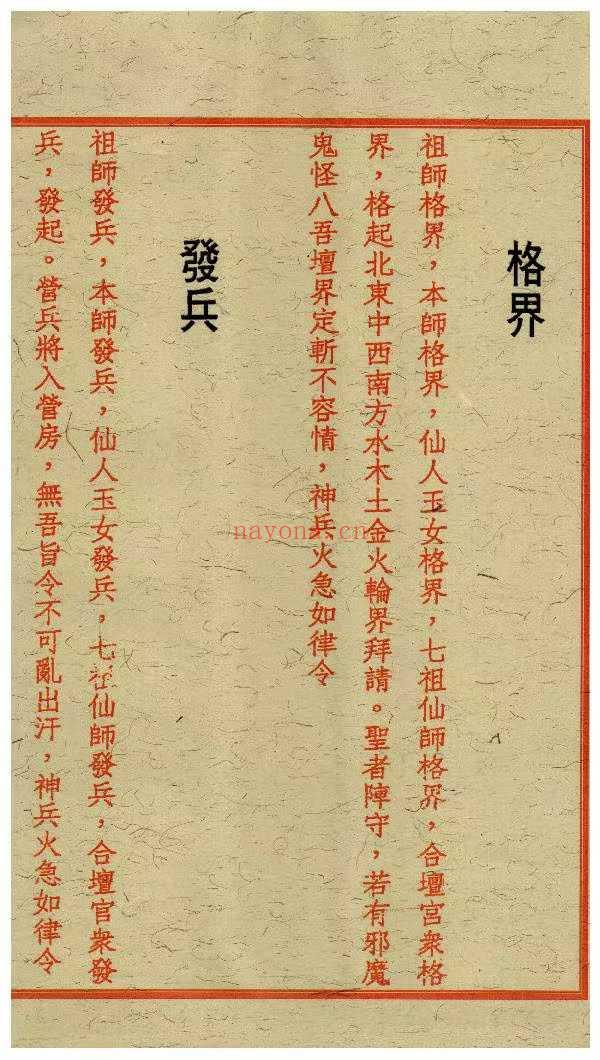 格界
祖師格界，本師格界，仙人玉女格界，七祖仙師格界，合壇宮衆格
界，格起北東中西南方水木土金火輪界拜請。聖者陣守，若有邪魔
鬼怪八吾壇界定斬不容情，神兵火急如律令
發兵
祖師發兵，本師發兵，仙人玉女發兵，七祖仙師發兵，合壇官衆發
兵，發起。營兵將入營房，無吾旨令不可亂出汗，神兵火急如律令
nayona.cn